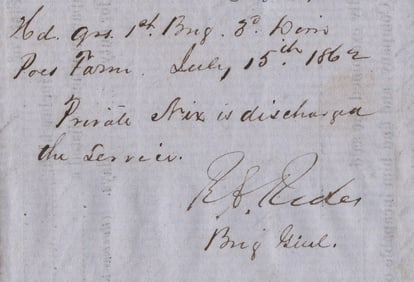 Hd. Qrs. 1st. Brig. 3d. Divn
Poes Farm. July, 15th. 1862
Private Nix is discharged
the service.
R E. Rodes
Brig Genl.